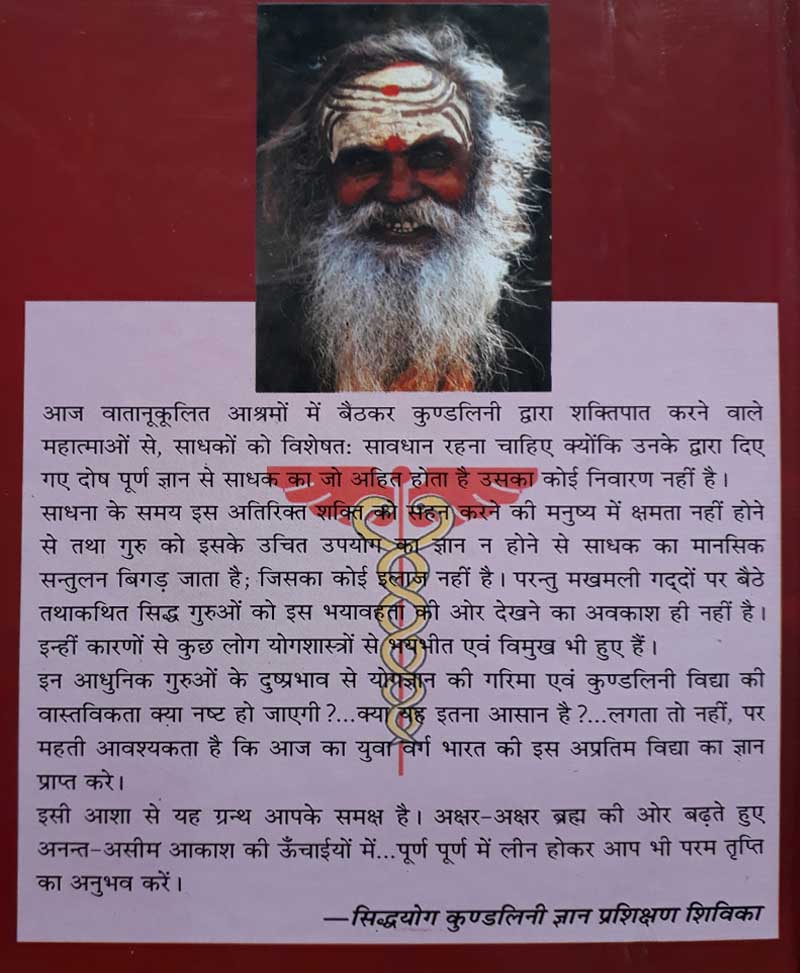 आज वातानूकूलित आश्रमों में बैठकर कुण्डलिनी द्वारा शक्तिपात करने वाले
महात्माओं से, साधकों को विशेषत: सावधान रहना चाहिए क्योंकि उनके द्वारा दिए
गए दोष पूर्ण ज्ञान से साधक का जो अहित होता है उसका कोई निवारण नहीं है।
साधना के समय इस अतिरिक्त शक्ति को सहन करने की मनुष्य में क्षमता नहीं होने
से तथा गुरु को इसके उचित उपयोग का ज्ञान न होने से साधक का मानसिक
सन्तुलन बिगड़ जाता है; जिसका कोई इलाज नहीं है। परन्तु मखमली गद्दों पर बैठे
तथाकथित सिद्ध गुरुओं को इस भयावहता की ओर देखने का अवकाश ही नहीं है।
इन्हीं कारणों से कुछ लोग योगशास्त्रों से भयभीत एवं विमुख भी हुए हैं।
इन आधुनिक गुरुओं के दुष्प्रभाव से योगज्ञान की गरिमा एवं कुण्डलिनी विद्या की
वास्तविकता क्या नष्ट हो जाएगी?...क्या यह इतना आसान है?...लगता तो नहीं, पर
महती आवश्यकता है कि आज का युवा वर्ग भारत की इस अप्रतिम विद्या का ज्ञान
प्राप्त करे।
इसी आशा से यह ग्रन्थ आपके समक्ष है। अक्षर-अक्षर ब्रह्म की ओर बढ़ते हुए
अनन्त-असीम आकाश की ऊँचाईयों में...पूर्ण पूर्ण में लीन होकर आप भी परम तृप्ति
का अनुभव करें।
—सिद्धयोग कुण्डलिनी ज्ञान प्रशिक्षण शिविका